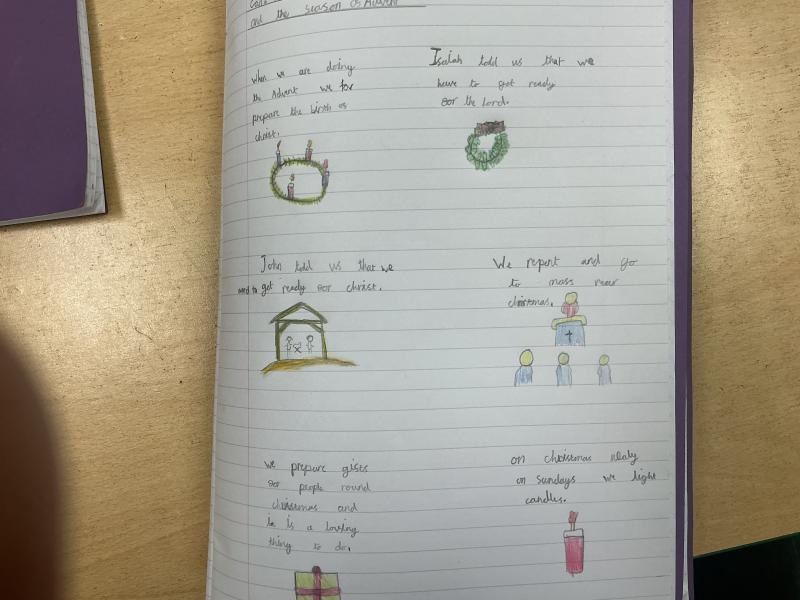 and the season os Advent
when we are doing
the Advent we for
prepare the birth os
christ.
Isaiah told us that we
have to get ready
sor the Lord.
John told us that we
need to get ready sor christ.
We repent and go
to mass near
christmas.
we prepare gists
sor people round
christmas and
is a loving
thing to do.
on christmas
on Sundays we light
candles.